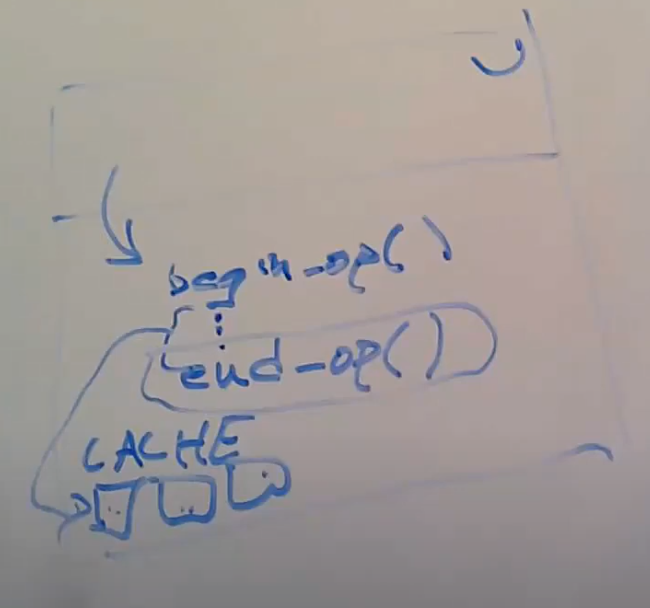 begin_op()
end_op()
CACHE